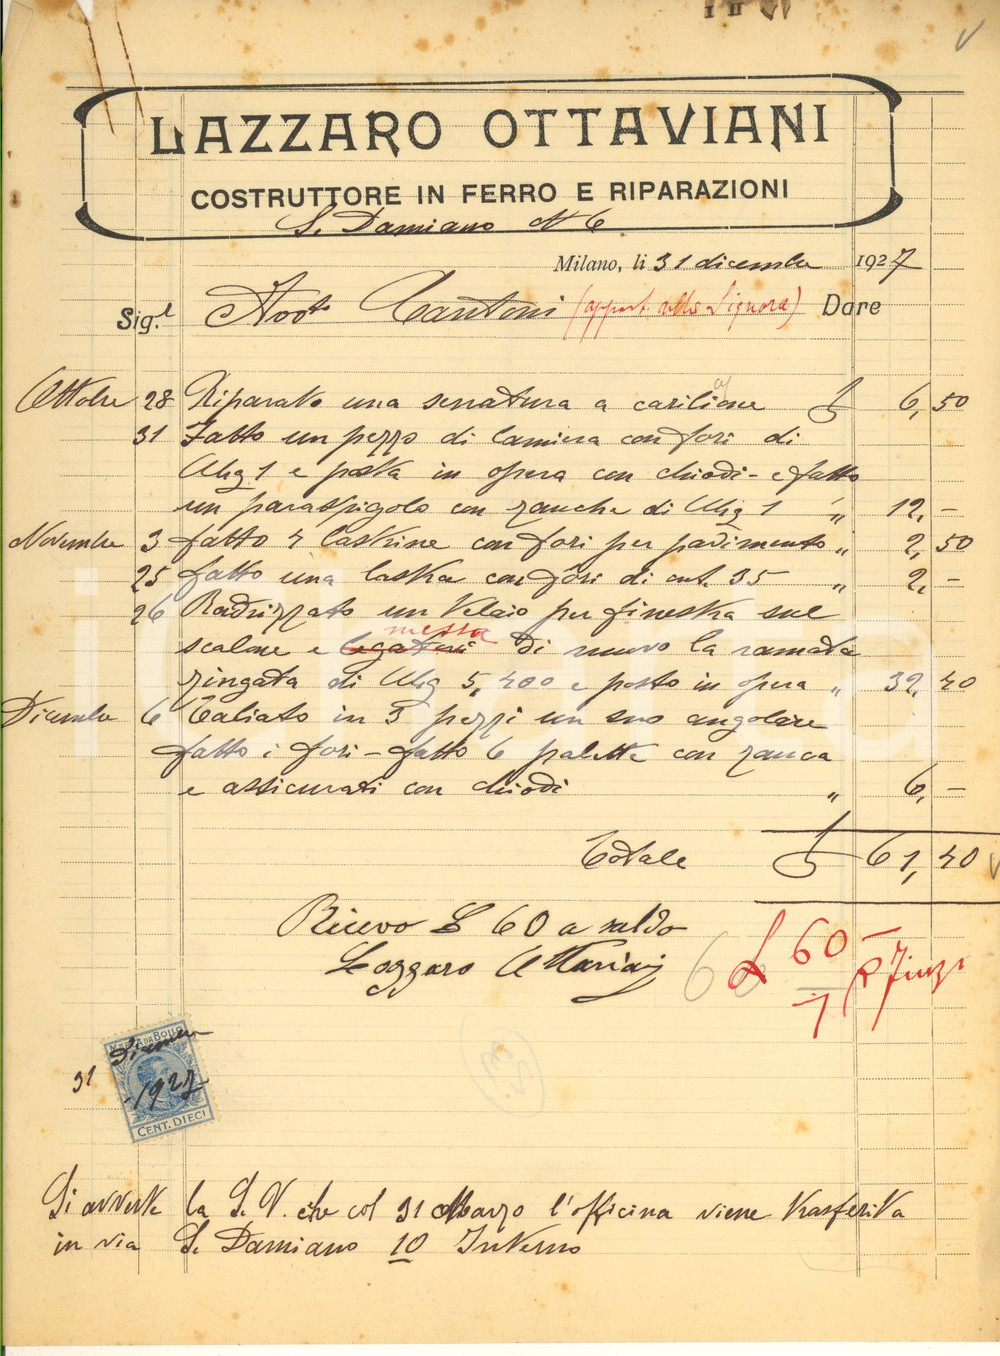 LAZZARO OTTAVIANI
COSTRUTTORE IN FERRO E RIPARAZIONI
S. Damiano N 6
Milano, li 31 dicembre 1927
Sig.r Avv.to Cantoni (appart. della Signora) Dare
Ottobre 28 Riparato una serratura a carilione £ 6,50
31 Fatto un pezzo di lamiera con fori di
Mg 1 e posta in opera con chiodi - e fatto
un paraspigolo con zanche di Mg 1 " 12,-
Novembre 3 fatto 4 lastrine con fori per pavimento " 2,50
25 fatto una lastra con fori di cnt. 35 " 2,-
26 Radrizzato un telaio per finestra sul
messa
scalone e di nuovo la ramata
zingata di Mg 5,400 e posto in opera " 32,40
Dicembre 6 Taliato in 3 pezzi un suo angolare
fatto i fori - fatto 6 palette con zanca
e assicurati con chiodi " 6,-
Totale £ 61,40
Ricevo £ 60 a saldo
Lazzaro Ottaviani
£ 60 -
MARCA DA BOLLO
31 Dicembre
1927
CENT. DIECI
Si avverte la S. V. che col 31 Marzo l'officina viene trasferita
in via S. Damiano 10 Interno